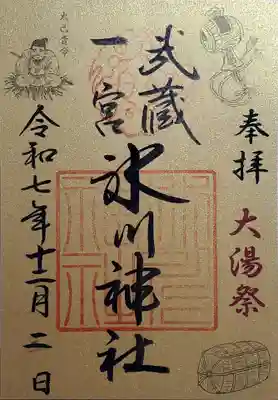 奉拝
大湯祭
武蔵
一宮
氷川神社
令和七年十二月二日
大己貴命